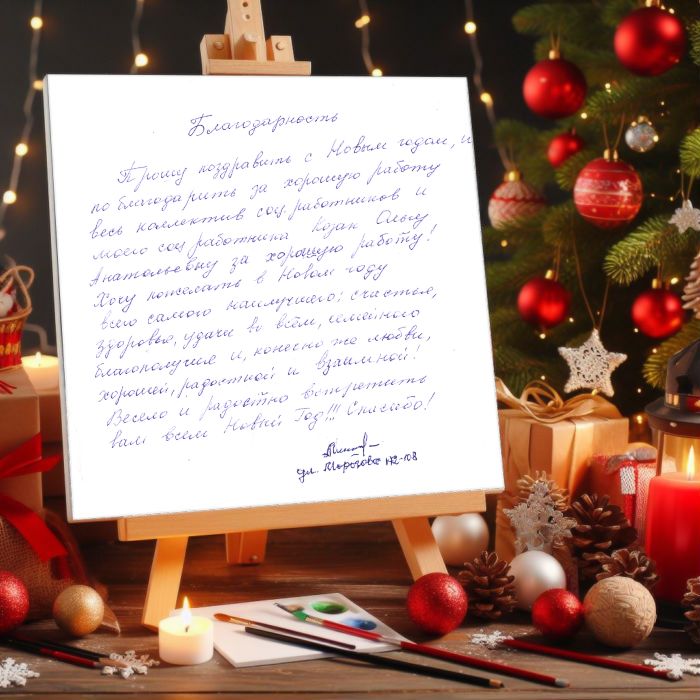 Благодарность
Прошу поздравить с Новым годом, и
поблагодарить за хорошую работу
весь коллектив соц.работников и
моего соц.работника Козан Ольгу
Анатольевну за хорошую работу!
Хочу пожелать в Новом году
всего самого наилучшего: счастья,
здоровья, удачи во всём, семейного
благополучия и, конечно же любви,
хорошей, радостной и взаимной!
Весело и радостно встретить
вам всем Новый Год!!! Спасибо!
ул. Морозова 142-108